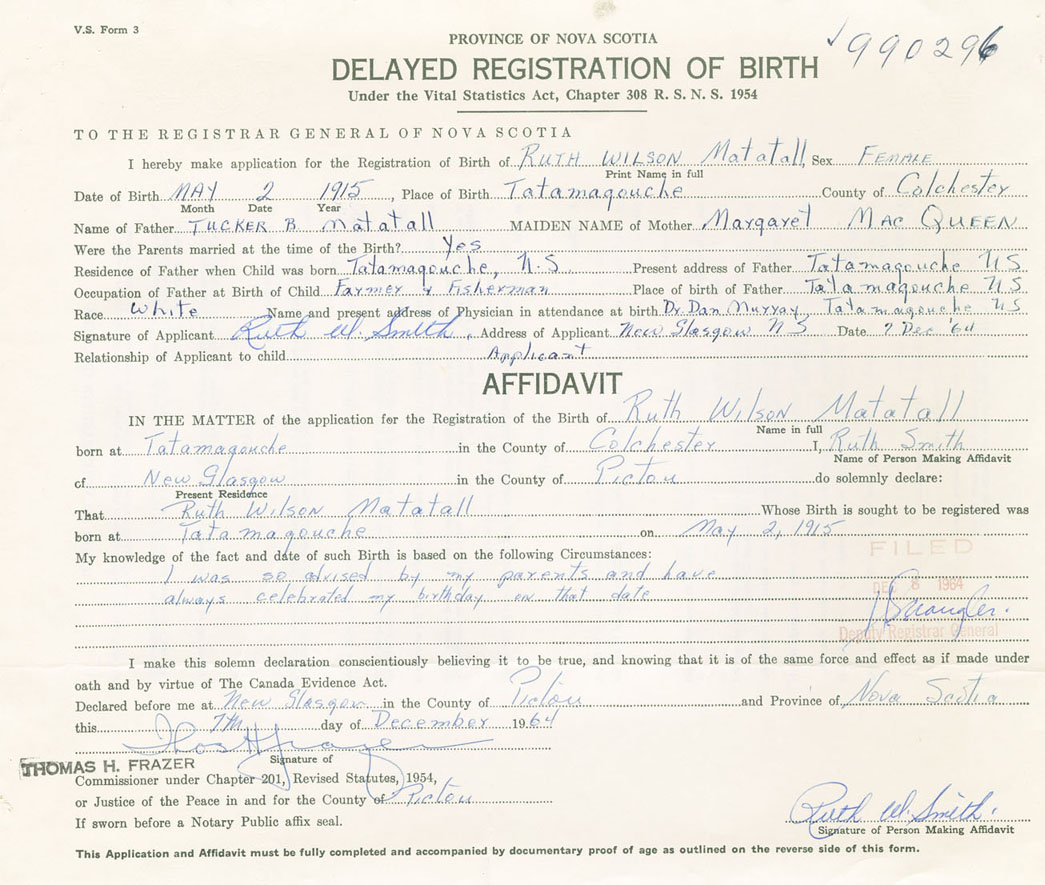 V.S. Form 3
990296
PROVINCE OF NOVA SCOTIA
DELAYED REGISTRATION OF BIRTH
Under the Vital Statistics Act, Chapter 308 R. S. N. S. 1954
TO THE REGISTRAR GENERAL OF NOVA SCOTIA
I hereby make application for the Registration of Birth of RUTH WILSON Matatall, Sex FEMALE
Print Name in full
Date of Birth MAY 2 1915, Place of Birth Tatamagouche County of Colchester
Month Date Year
Name of Father TUCKER B Matatall MAIDEN NAME of Mother Margaret MAC QUEEN
Were the Parents married at the time of the Birth? Yes
Residence of Father when Child was born Tatamagouche, N.S Present address of Father Tatamagouche N S
Occupation of Father at Birth of Child Farmer & Fisherman Place of birth of Father Tatamagouche N S
Race White Name and present address of Physician in attendance at birth Dr Dan Murray, Tatamagouche N S
Signature of Applicant Ruth W. Smith, Address of Applicant New Glasgow N S Date 7 Dec '64
Relationship of Applicant to child Applicant
AFFIDAVIT
IN THE MATTER of the application for the Registration of the Birth of Ruth Wilson Matatall
Name in full
born at Tatamagouche in the County of Colchester I, Ruth Smith
Name of Person Making Affidavit
of New Glasgow in the County of Pictou do solemnly declare:
Present Residence
That Ruth Wilson Matatall Whose Birth is sought to be registered was
born at Tatamagouche on May 2, 1915
My knowledge of the fact and date of such Birth is based on the following Circumstances:
FILED
I was so advised by my parents and have
always celebrated my birthday on that date
DEC 8 1964
Deputy Registrar General
I make this solemn declaration conscientiously believing it to be true, and knowing that it is of the same force and effect as if made under
oath and by virtue of The Canada Evidence Act.
Declared before me at New Glasgow in the County of Pictou and Province of Nova Scotia
this 7th day of December 1964
Thos H Frazer
Signature of
THOMAS H. FRAZER
Commissioner under Chapter 201, Revised Statutes, 1954,
or Justice of the Peace in and for the County of Pictou
If sworn before a Notary Public affix seal.
Ruth W. Smith.
Signature of Person Making Affidavit
This Application and Affidavit must be fully completed and accompanied by documentary proof of age as outlined on the reverse side of this form.